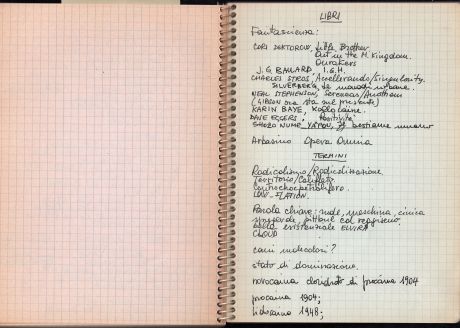 LIBRI
Fantascienza:
CORI DOKTOROW, Little Brother
Out in the M. Kingdom.
Ourakers
J.G. BALLARD, I.G.H.
CHARLES STROS, Accellerando/Singularity.
SILVERBERG, Le monadi urbane.
NEAL STEPHENSON, /Anathem
(GIBSON ora sta sul presente)
KARIN BOYE, Kallocaina.
DAVE EGGERS, Positività
SHOZO NUME, YAPOU, Il bestiame umano
Arbasino Opera Omnia
TERMINI
Radicalismo/Radicalizzazione
Territorio/Califfato
LOW-FLATION.
Parola chiave: rude, meschina, cinica
col reggiseno.
esistenziale ELVIRA
CLOUD
cani multicolori?
stato di dominazione.
novocaina cloridrato di procaina 1904
procaina 1904;
lidocaina 1948;